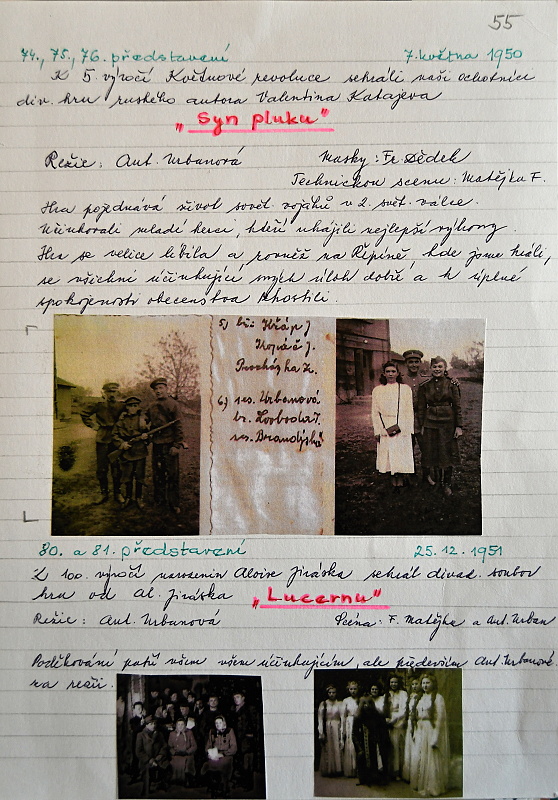 55
74., 75., 76. představení 7. května 1950
K 5. výročí Květnové revoluce sehráli naši ochotníci
div. hru ruského autora Valentina Katajeva
„Syn pluku"
Režie: Ant. Urbanová Masky: Fr. Dědek
Technickou scenu: Matějka F.
Hra pojednává život sovět. vojáků v 2. svět. válce.
Účinkovali mladí herci, kteří uhájili nejlepší výkony.
Hra se velice líbila a rovněž na Řepíně, kde jsme hráli,
se všichni účinkující svých úloh dobře a k úplné
spokojenosti obecenstva zhostili.
5) bří Křáp J
Kopáč J.
Procházka Z.
6) ses. Urbanová
br. Svoboda F.
ses. Brandýská
80. a 81. představení 25. 12. 1951
K 100. výročí narozenin Aloise Jiráska sehrál divad. soubor
hru od Al. Jiráska „Lucernu"
Režie: Ant. Urbanová Scéna: F. Matějka a Ant. Urban
Poděkování patří všem všem účinkujícím, ale především Ant. Urbanové
na režii.